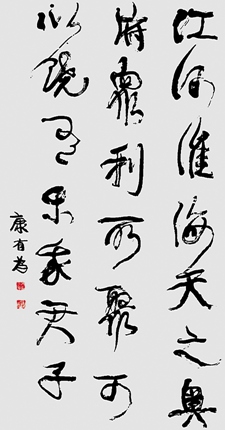 江河淮海天之奧
府眾利所聚可
以饒有樂我君子
康有為